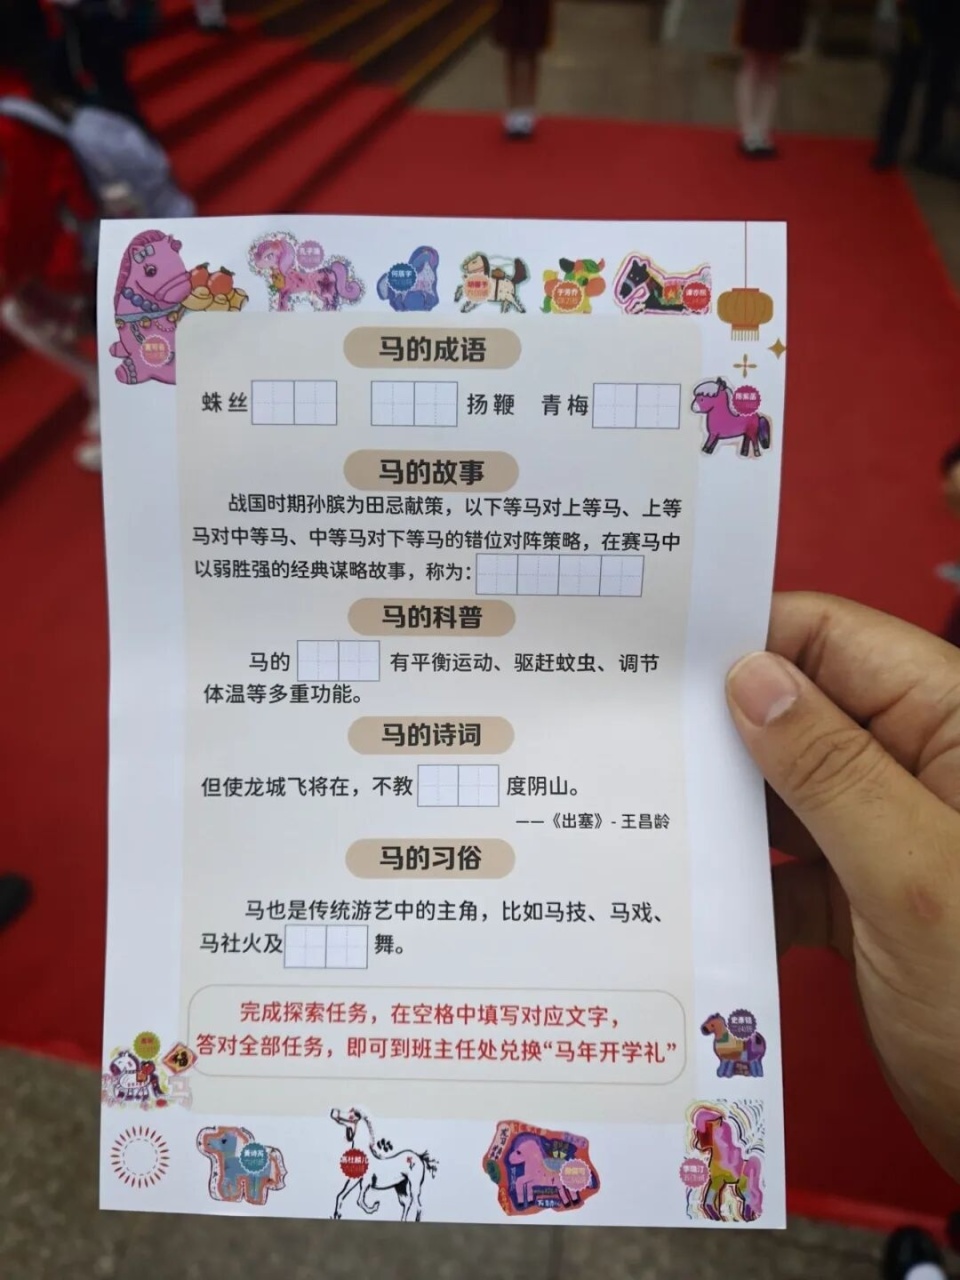 马的成语
蛛丝 扬鞭 青梅
马的故事
战国时期孙膑为田忌献策，以下等马对上等马、上等
马对中等马、中等马对下等马的错位对阵策略，在赛马中
以弱胜强的经典谋略故事，称为：
马的科普
马的 有平衡运动、驱赶蚊虫、调节
体温等多重功能。
马的诗词
但使龙城飞将在，不教 度阴山。
——《出塞》- 王昌龄
马的习俗
马也是传统游艺中的主角，比如马技、马戏、
马社火及 舞。
完成探索任务，在空格中填写对应文字，
答对全部任务，即可到班主任处兑换“马年开学礼”
福